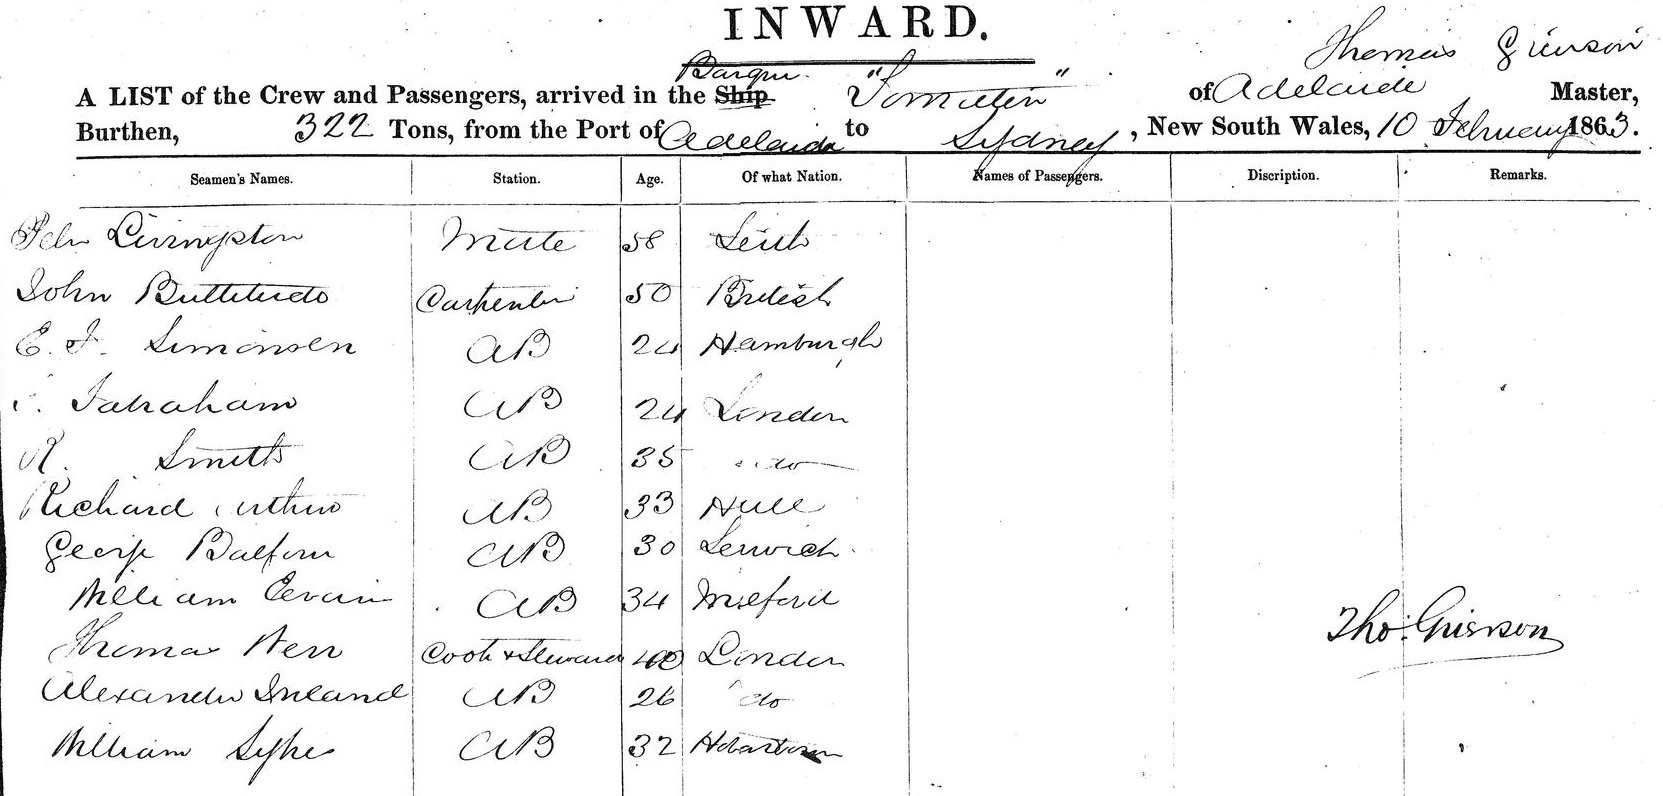 INWARD.
Thomas Grierson
Barque "Tomatin"
A LIST of the Crew and Passengers, arrived in the Ship of Adelaide Master,
Burthen, 322 Tons, from the Port of Adelaide to Sydney, New South Wales, 10 February 1863.
Seamen's Names. Station. Age. Of what Nation. Names of Passengers. Discription. Remarks.
Livingston Mate 58 Leith
John Carpenter 50 British
E. F. Simonsen AB 24 Hamburgh
AB 24 London
R. Smith AB 35 do
Richard AB 33 Hull
George Balfour AB 30 Lerwick
William Evans AB 34 Milford
Thomas Kerr Cook & Steward 40 London
Alexander Ireland AB 26 do
William AB 32
Tho. Grierson